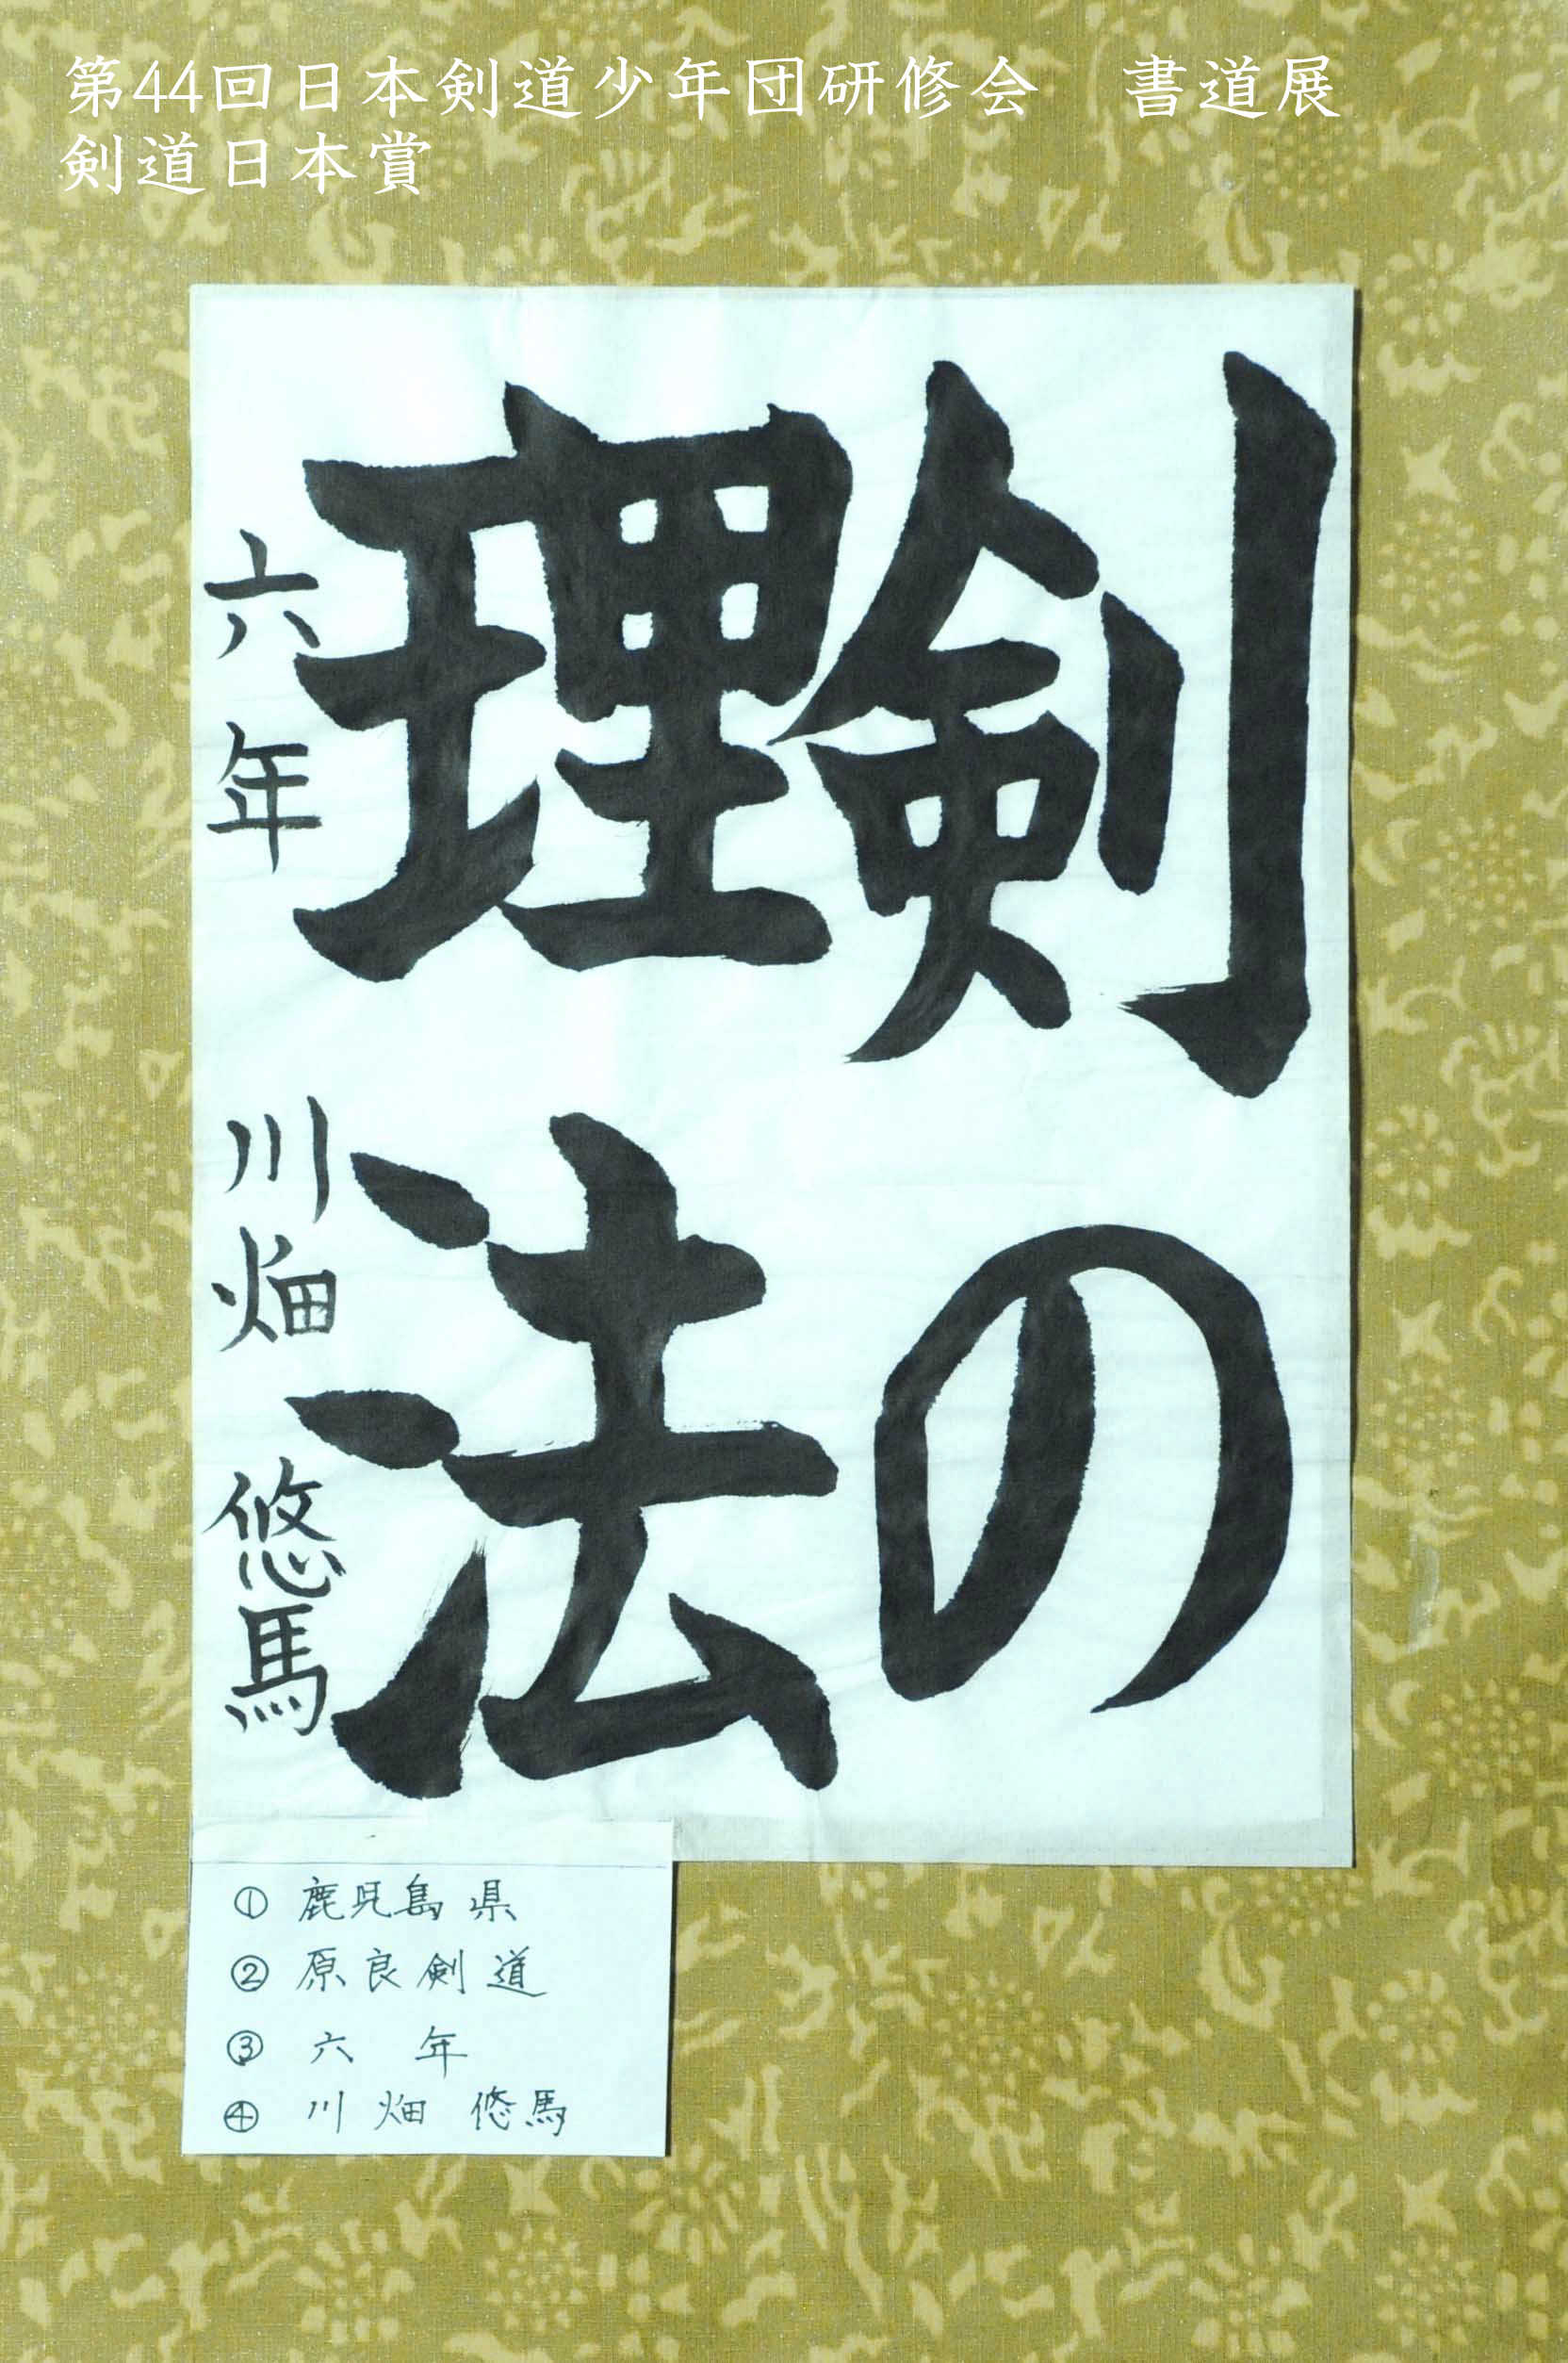 第44回日本剣道少年団研修会　書道展
剣道日本賞
剣の
理法
六年　川畑　悠馬
① 鹿児島県
② 原良剣道
③ 六年
④ 川畑 悠馬